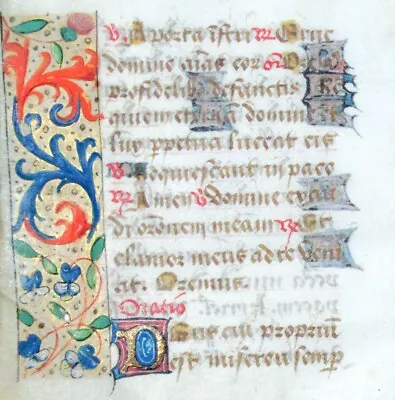 V A porta īferi R Erue
domine aīas eor or Oro
pro fidelibȝ defunctis Re
quiem eternā dona eis dn̄e et
lux perpetua luceat eis
V Requiescant in pace
R Amen V domine exau
di oronem meam R Et
clamor meus ad te veni
at. Oremus.
Oracio
Deus cui propriū
est misereri semp